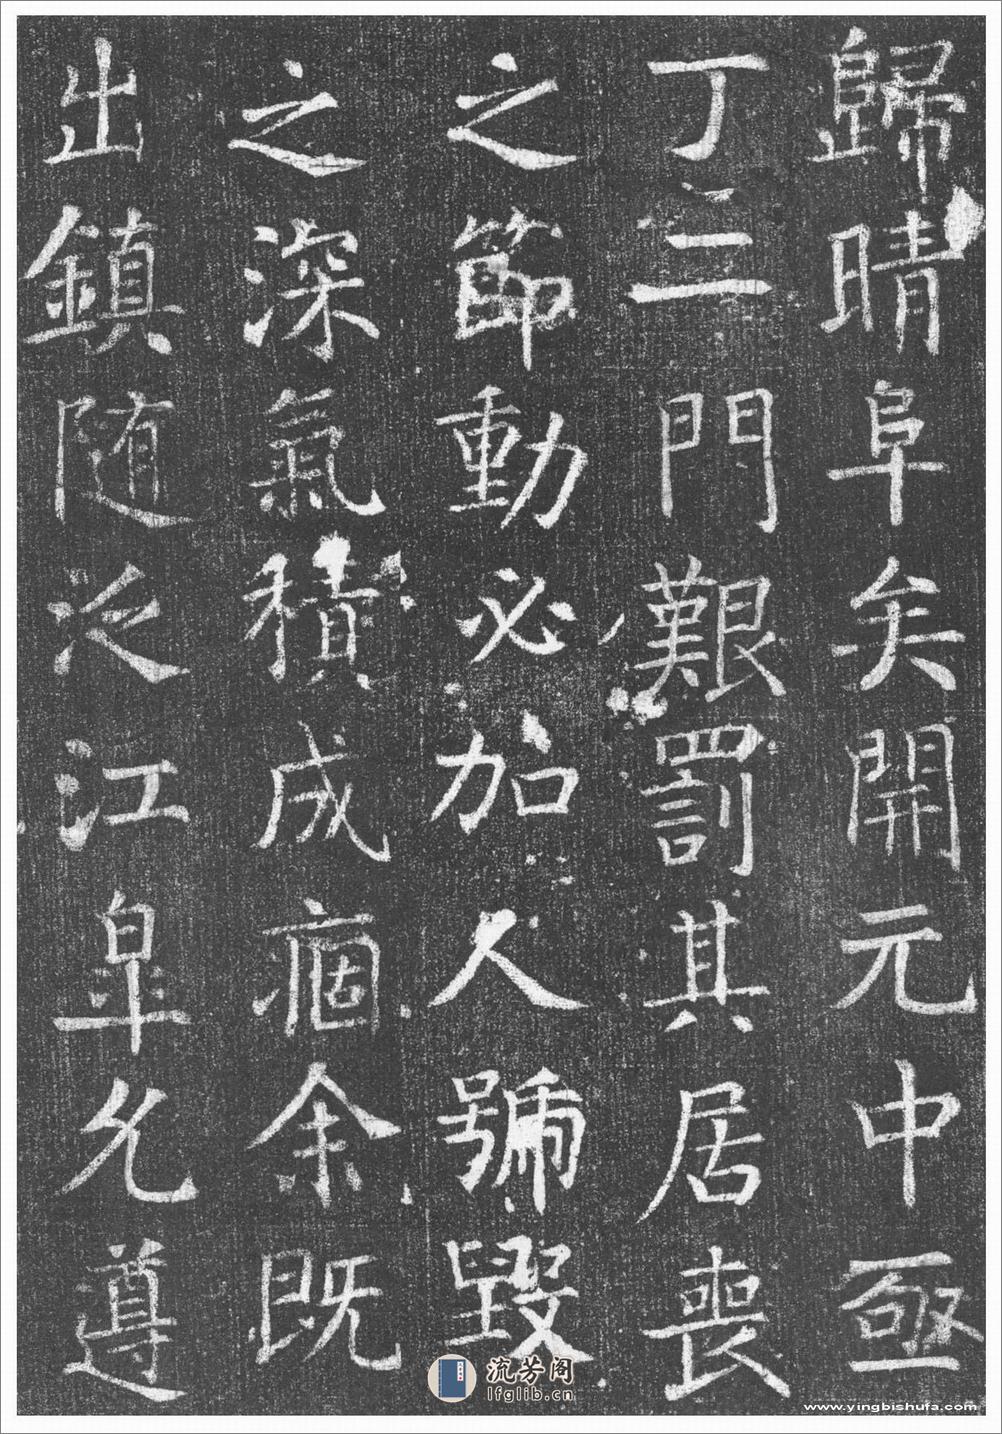 歸晴阜矣開元中亟
丁二門艱罰其居喪
之節動必加人號毀
之深氣積成痼余既
出鎮随泛江皐允遵
流芳阁
lfglib.cn
www.yingbishufa.com